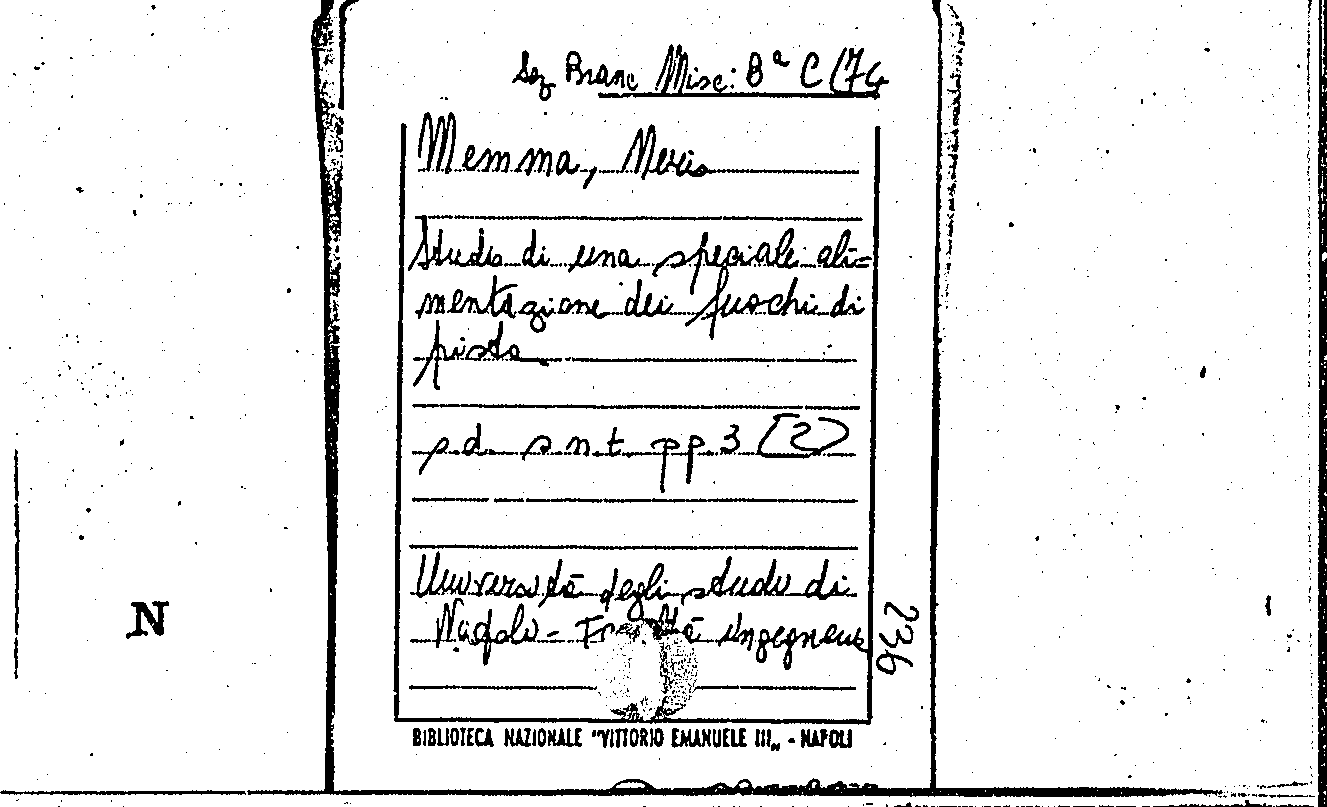 Sez Branc Misc: Bª C (74
Memma, Neris
Studio di una speciale ali=
mentazione dei fuochi di
pista.
s.d. s.n.t. pp. 3 [2]
Università degli studi di
Napoli - Facoltà ingegneria
236
N
BIBLIOTECA NAZIONALE "VITTORIO EMANUELE III„ - NAPOLI